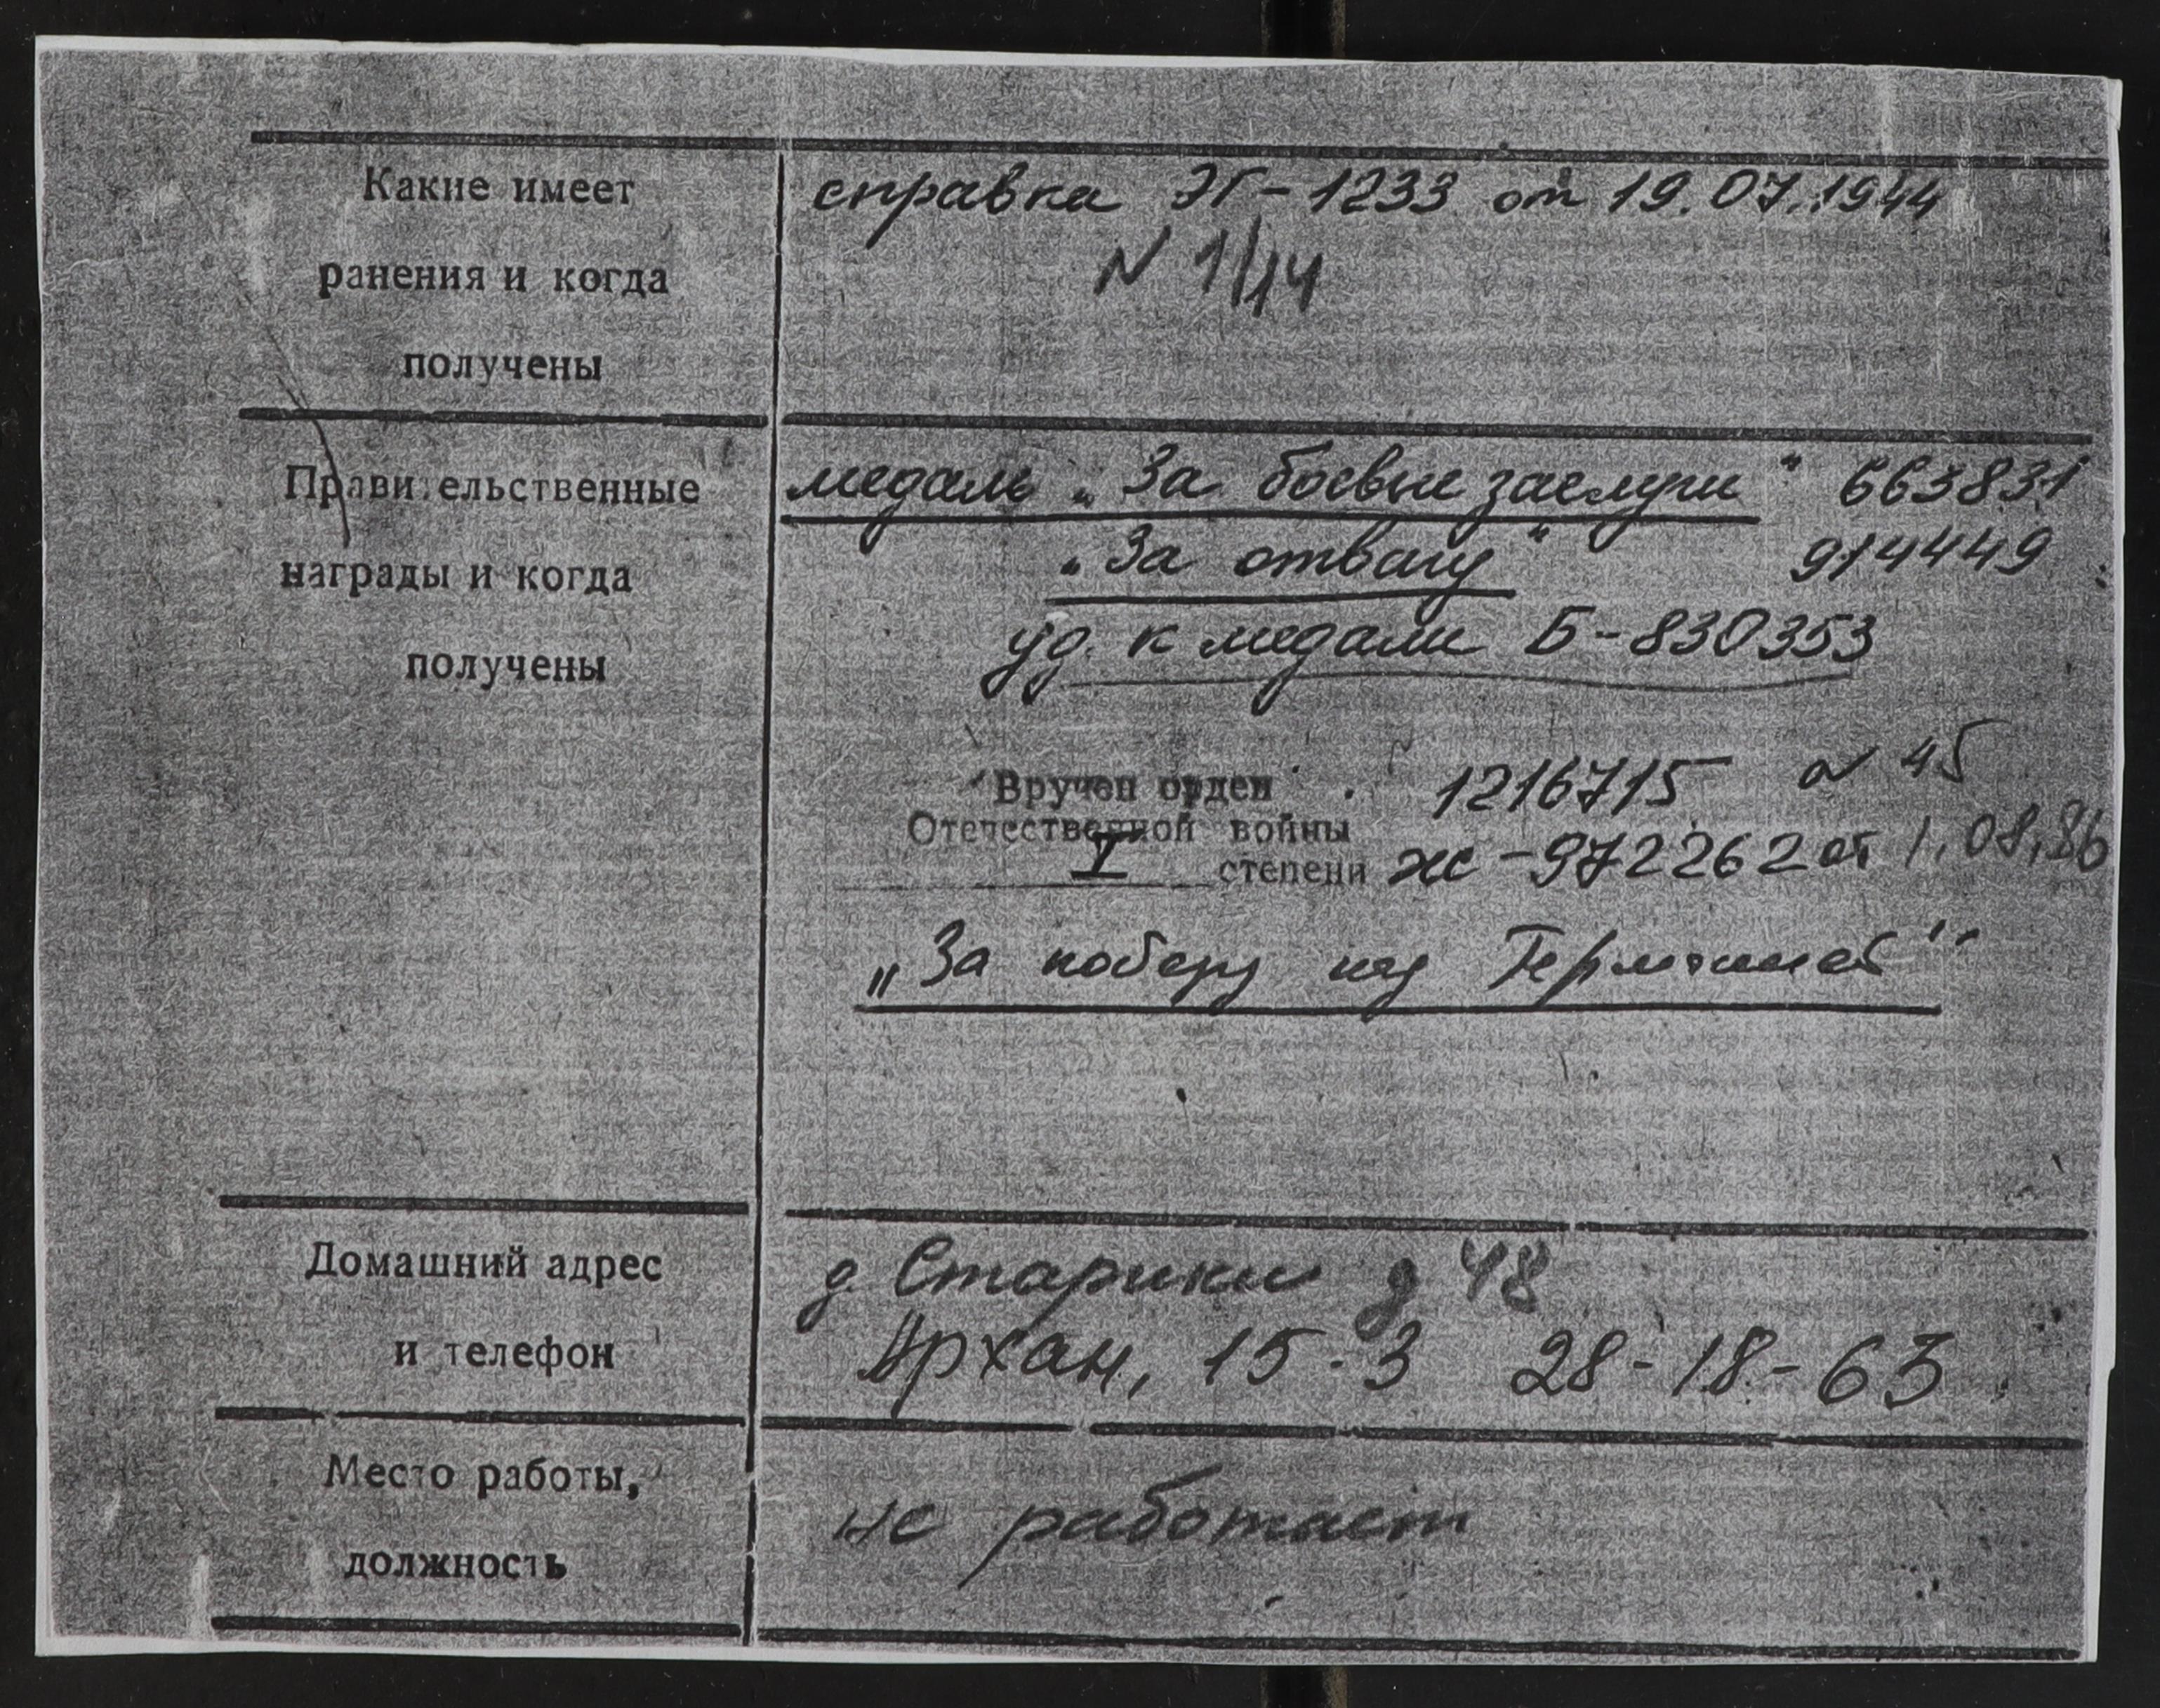 Какие имеет
ранения и когда
получены
справка ЭГ-1233 от 19.07.1944
N 1/144
Правительственные
награды и когда
получены
медаль „За боевые заслуги" 663831
„За отвагу" 914449
уд. к медали Б-830353
Вручен орден 1216715 N 45
Отечественной войны
I степени Ж-972262 от 1.08.86
„За победу над Германией"
Домашний адрес
и телефон
д. Старики д 48
Архан, 15-3 28-18-63
Место работы,
должность
не работает